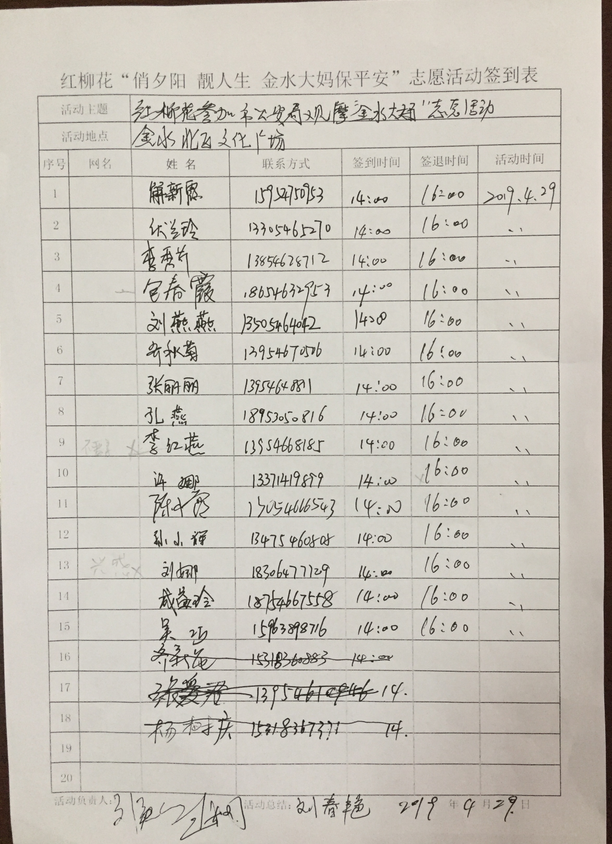 红柳花“俏夕阳 靓人生 金水大妈保平安”志愿活动签到表
活动主题 红柳花参加市公安局观摩“金水大妈”志愿活动
活动地点 金水 文化广场
序号 网名 姓名 联系方式 签到时间 签退时间 活动时间
1 解新 15954750953 14:00 16:00 2019.4.29
2 伏兰玲 13305465270 14:00 16:00 、、
3 李秀芹 13854628712 14:00 16:00 、、
4 宫春霞 18654632953 14:00 16:00 、、
5 刘燕燕 13505464042 14:00 16:00 、、
6 乔秋菊 13954670506 14:00 16:00 、、
7 张丽丽 13954648811 14:00 16:00 、、
8 孔燕 18953050816 14:00 16:00 、、
9 李红燕 13954668185 14:00 16:00 、、
10 许娜 13371419899 14:00 16:00
11 15054666543 14:00 16:00 、、
12 孙小辉 13475460808 14:00 16:00 、、
13 刘娜 18306477129 14:00 16:00 、、
14 成黄玲 18754667558 14:00 16:00 、、
15 吴 15963898716 14:00 16:00 、、
16 15318360883 14:00
17 14.
18 杨 庆 15318367371 14.
19
20
活动负责人: 活动总结: 刘春艳 2019 年 4 月 29 日